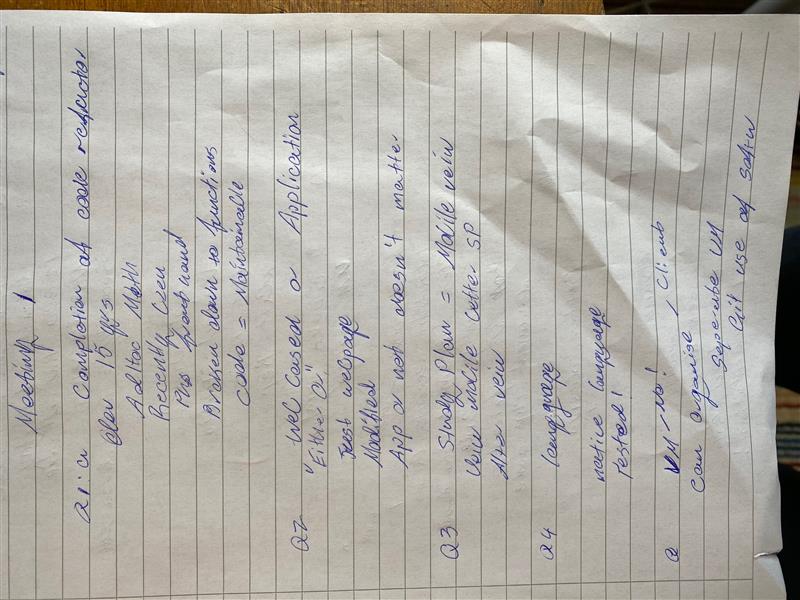 Meeting 1
Q1: a Completion of code refractor
Over 15 yrs
AdHoc Meth
Recently Czen
Pro front hand
Broken down to functions
code = Maintainable
Q2 web based or Application
"Either or"
Test webpage
Modified
App or not doesn't matter
Q3 Study Plan = Mobile veiw
Veiw mobile better SP
Alter veiw
Q4 language
native language
tested!
Q VM - No!
Can organise , Client
Seperate VM
Git use of